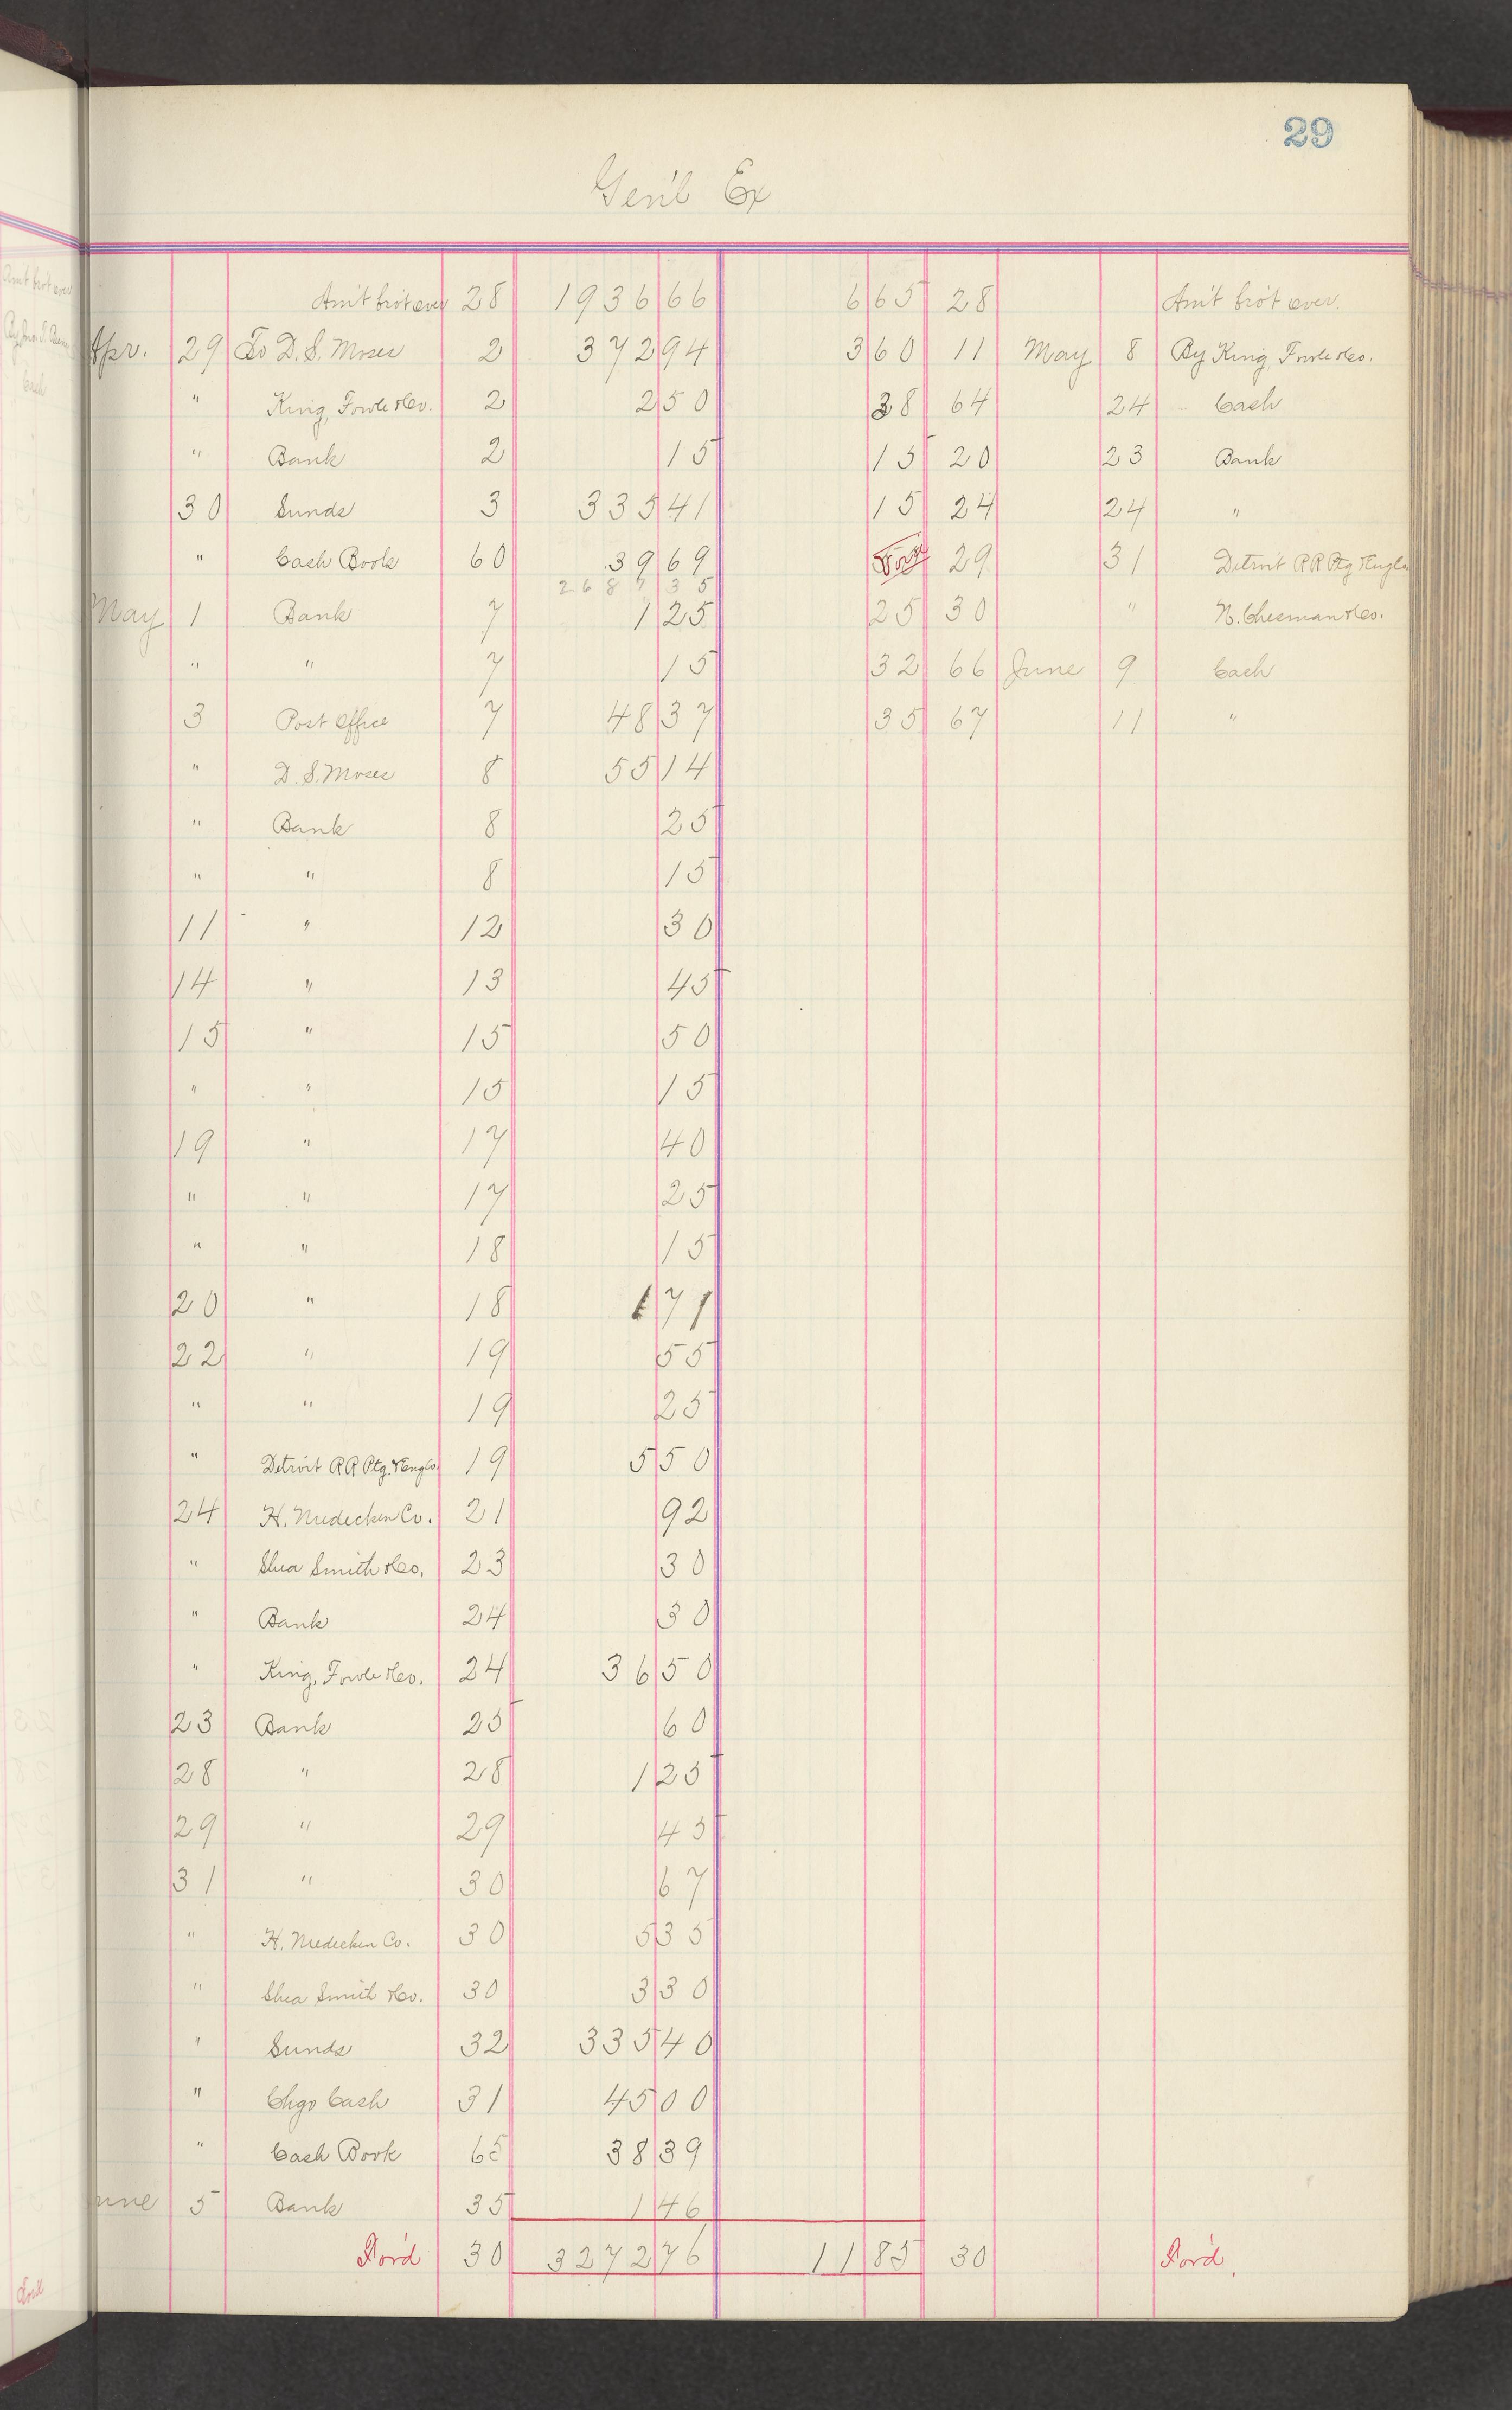 29
Gen'l Ex
Am't bro't over 28 1936 66 6 65 28 Am't bro't over.
Apr. 29 To D. S. Moses 2 372 94 3 60 11 May 8 By King, Fowle & Co.
" King, Fowle & Co. 2 2 50 38 64 24 " Cash
" Bank 2 15 15 20 23 Bank
30 Sunds 3 335 41 15 24 24 "
" Cash Book 60 39 69 29 31 Detroit RR Ptg & Eng Co
2687 35
May 1 Bank 7 1 25 25 30 " N. Chesman & Co.
" " 7 15 32 66 June 9 Cash
3 Post Office 7 48 37 35 67 11 "
" D. S. Moses 8 55 14
" Bank 8 25
" " 8 15
11 " 12 30
14 " 13 45
15 " 15 50
" " 15 15
19 " 17 40
" " 17 25
" " 18 15
20 " 18 1 71
22 " 19 55
" " 19 25
" Detroit RR Ptg. & Eng Co. 19 5 50
24 H. Niedecken Co. 21 92
" Shea Smith & Co. 23 30
" Bank 24 30
" King, Fowle & Co. 24 36 50
23 Bank 25 60
28 " 28 1 25
29 " 29 45
31 " 30 67
" H. Niedecken Co. 30 5 35
" Shea Smith & Co. 30 3 30
" Sunds 32 335 40
" Chgo Cash 31 45 00
" Cash Book 65 38 39
June 5 Bank 35 1 46
For'd 30 3272 76 11 85 30 For'd.